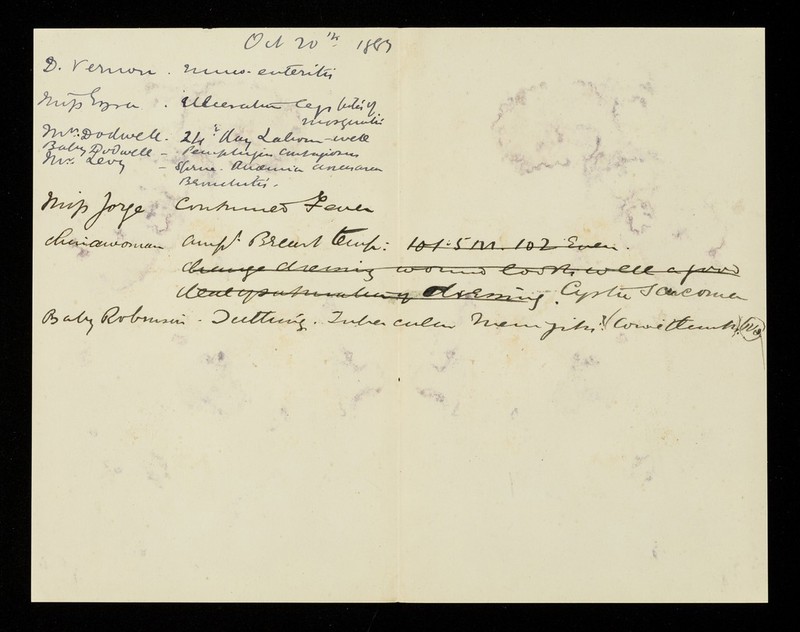 Oct 20th 1889
D. Vernon. muco-enteritis
Miss Ezra. Ulceration legs bites of
mosquitis
Mrs. Dodwell. 24th day Labour - well
Baby Dodwell - Pemphigus Contagiosus
Mrs. Levy - Sprue. Anaemia
Bronchitis.
Miss Jorge Continued Fever
Chinawoman Ampn. Breast temp: 101.5 M. 102 Even.
change dressing wound looks well a good
deal of dressing. Cystic Sarcoma
Baby Robinson - Teething. Tubercular Meningitis?